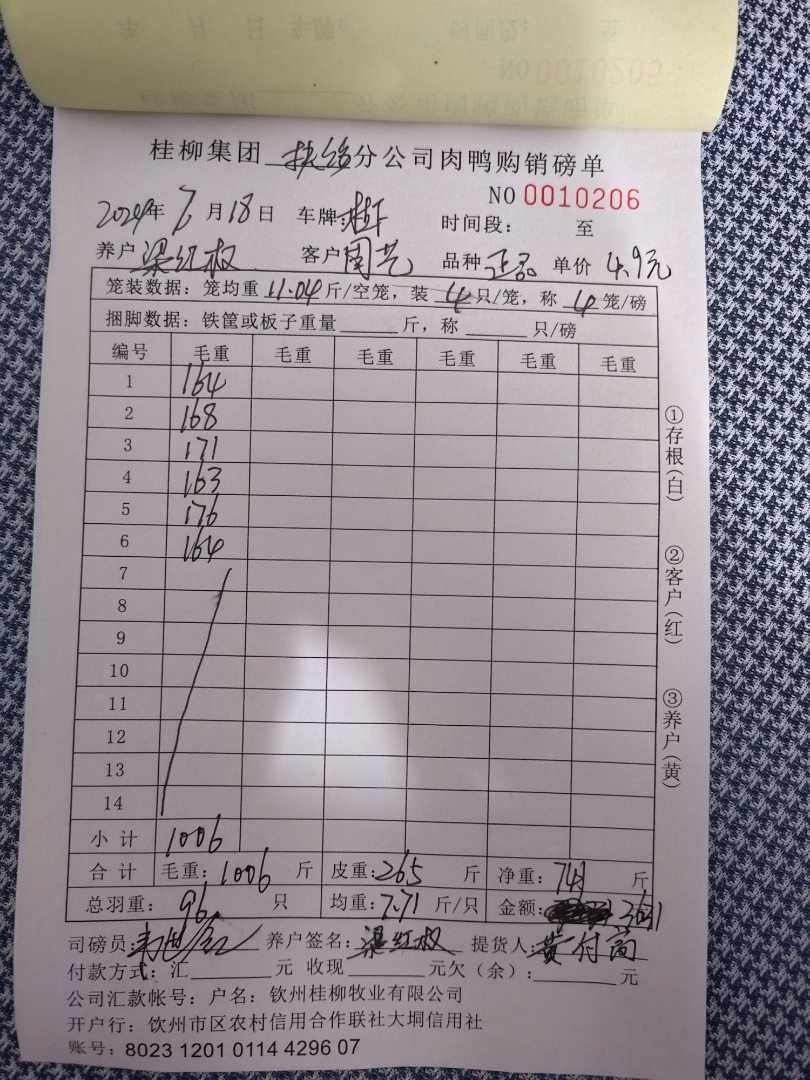 桂柳集团 扶绥 分公司肉鸭购销磅单
NO 0010206
2024年 7月18日 车牌: 时间段: 至
养户 梁红权 客户 周艺 品种 正品 单价 4.9元
笼装数据: 笼均重 11.04 斤/空笼, 装 4 只/笼, 称 4 笼/磅
捆脚数据: 铁筐或板子重量 斤, 称 只/磅
编号 毛重 毛重 毛重 毛重 毛重 毛重
1 164
2 168
3 171
4 163
5 176
6 164
7
8
9
10
11
12
13
14
小计 1006
合计 毛重: 1006 斤 皮重: 265 斤 净重: 741 斤
总羽重: 96 只 均重: 7.71 斤/只 金额: 3631
司磅员: 养户签名: 梁红权 提货人: 黄付高
付款方式: 汇 元 收现 元欠(余): 元
公司汇款帐号: 户名: 钦州桂柳牧业有限公司
开户行: 饮州市区农村信用合作联社大垌信用社
账号: 8023 1201 0114 4296 07
①存根(白)
②客户(红)
③养户(黄)